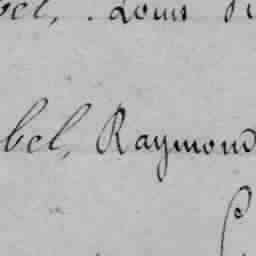 bel, Louis
bel, Raymond